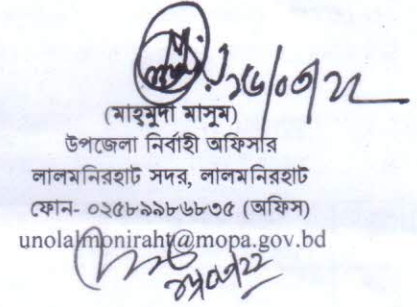 ১৬/০৩/২২
(মাহ্‌মুদা মাসুম)
উপজেলা নির্বাহী অফিসার
লালমনিরহাট সদর, লালমনিরহাট
ফোন- ০২৫৮৯৯৮৬৮৩৫ (অফিস)
unolalmoniraht@mopa.gov.bd